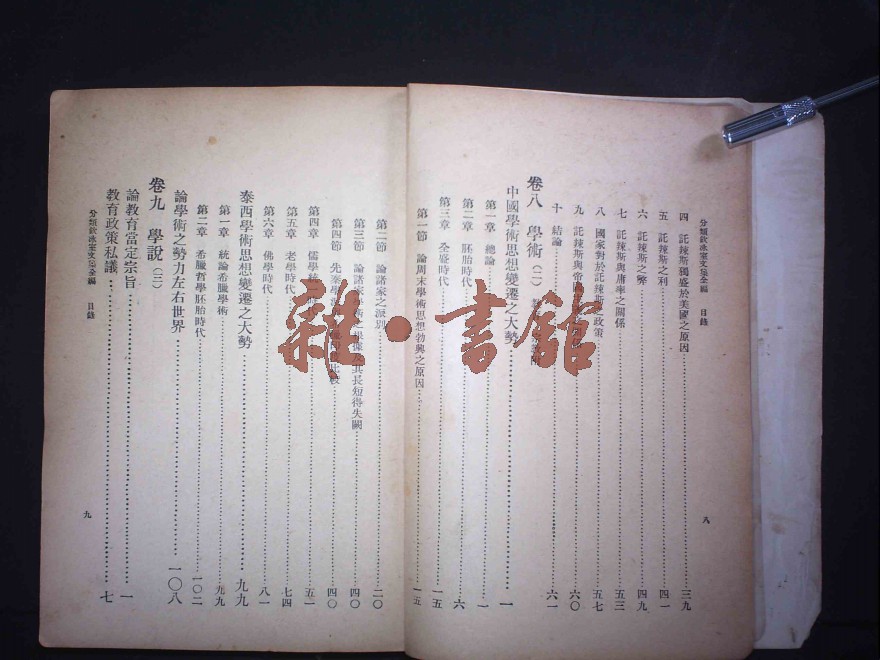 分類飲冰室文集全編　目錄
四　託辣斯獨盛於美國之原因……三九
五　託辣斯之利……四一
六　託辣斯之弊……四九
七　託辣斯與庸率之關係……五三
八　國家對於託辣斯之政策……五七
九　託辣斯與帝國……係……六〇
十　結論……六一
卷八　學術（二）
中國學術思想變遷之大勢……一
第一章　總論……一
第二章　胚胎時代……六
第三章　全盛時代……一五
第一節　論周末學術思想勃興之原因……一五
八
第二節　論諸家之派別……二〇
第三節　論諸家學術之根據及其長短得失闕……四〇
第四節　先秦學派……比較……四〇
第四章　儒學統……五一
第五章　老學時代……七四
第六章　佛學時代……八一
泰西學術思想變遷之大勢……九九
第一章　統論希臘學術……九九
第二章　希臘哲學胚胎時代……一〇二
論學術之勢力左右世界……一〇八
卷九　學說（三）
論教育當定宗旨……一
教育政策私議……七
分類飲冰室文集全編　目錄
九
雜·書館